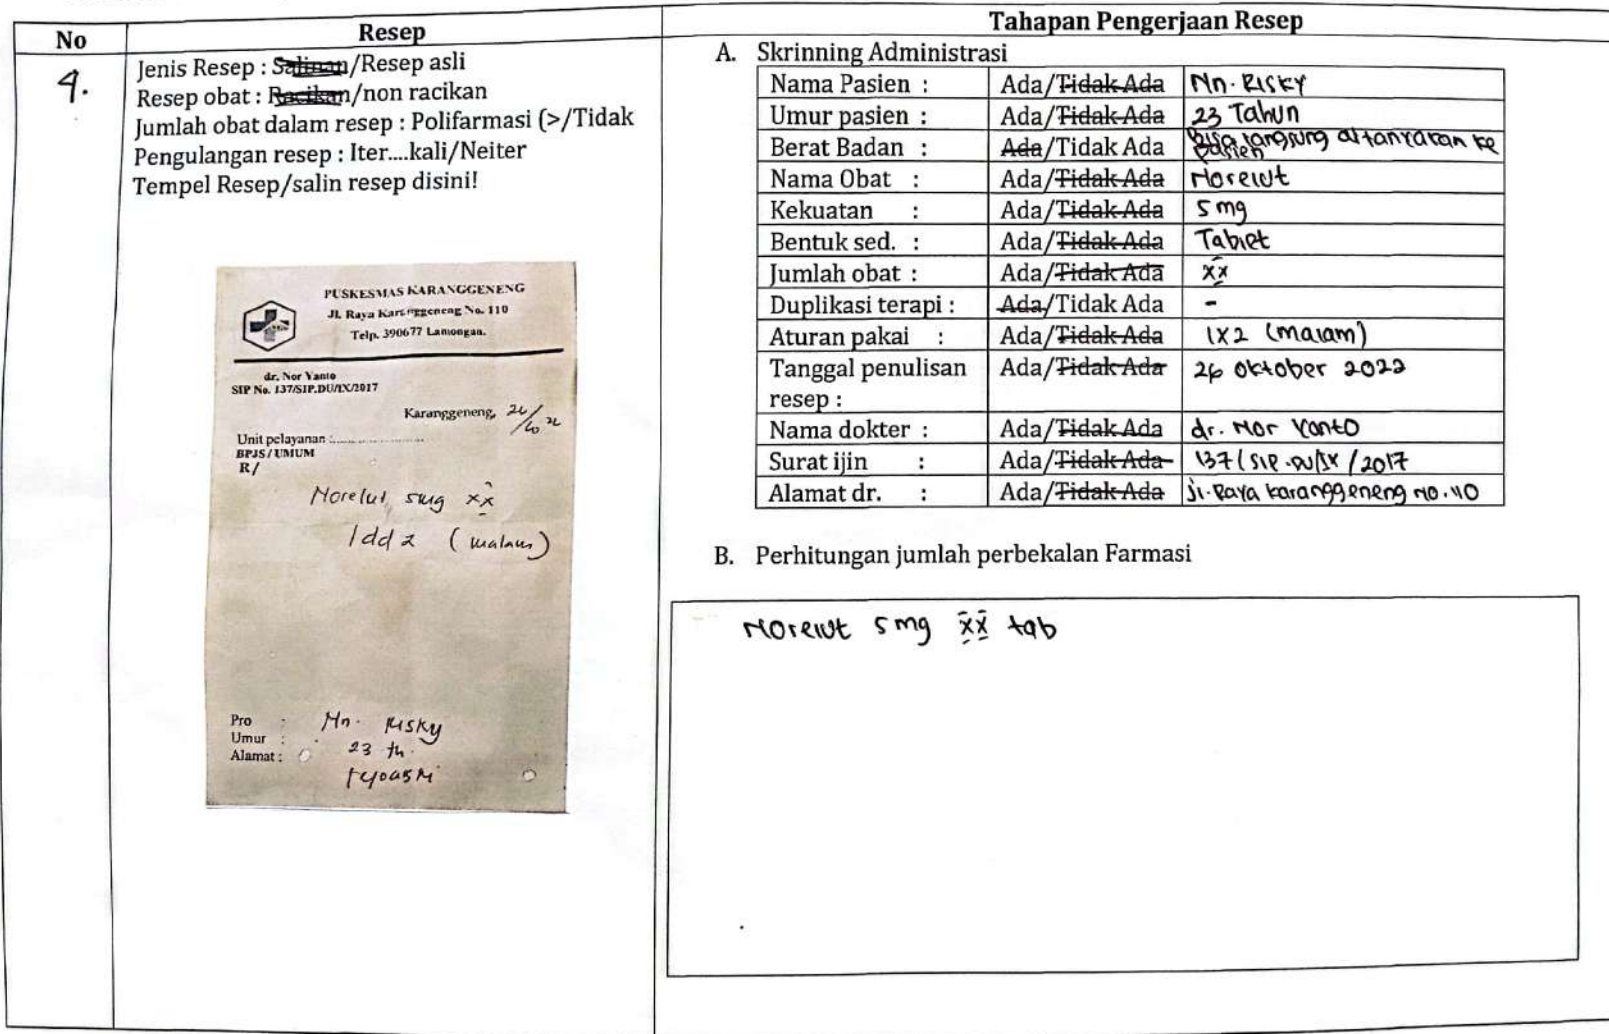 No
Resep
Tahapan Pengerjaan Resep
4.
Jenis Resep : Salinan/Resep asli
Resep obat : Racikan/non racikan
Jumlah obat dalam resep : Polifarmasi (>/Tidak
Pengulangan resep : Iter....kali/Neiter
Tempel Resep/salin resep disini!
PUSKESMAS KARANGGENENG
Jl. Raya Karanggeneng No. 110
Telp. 390677 Lamongan.
dr. Nor Yanto
SIP No. 137/SIP.DU/IX/2017
Karanggeneng,
Unit pelayanan :
BPJS / UMUM
R/
Norelut 5mg xx
1dd 2 (malam)
Pro : Nn. Risky
Umur : 23 th.
Alamat :
A. Skrinning Administrasi
Nama Pasien : Ada/Tidak Ada Nn. Risky
Umur pasien : Ada/Tidak Ada 23 Tahun
Berat Badan : Ada/Tidak Ada Bisa langsung ditanyakan ke pasien
Nama Obat : Ada/Tidak Ada Norelut
Kekuatan : Ada/Tidak Ada 5 mg
Bentuk sed. : Ada/Tidak Ada Tablet
Jumlah obat : Ada/Tidak Ada xx
Duplikasi terapi : Ada/Tidak Ada -
Aturan pakai : Ada/Tidak Ada 1x2 (malam)
Tanggal penulisan Ada/Tidak Ada 26 Oktober 2022
resep :
Nama dokter : Ada/Tidak Ada dr. Nor Yanto
Surat ijin : Ada/Tidak Ada 137/SIP.DU/IX/2017
Alamat dr. : Ada/Tidak Ada Jl. Raya Karanggeneng No. 110
B. Perhitungan jumlah perbekalan Farmasi
Norelut 5 mg xx tab